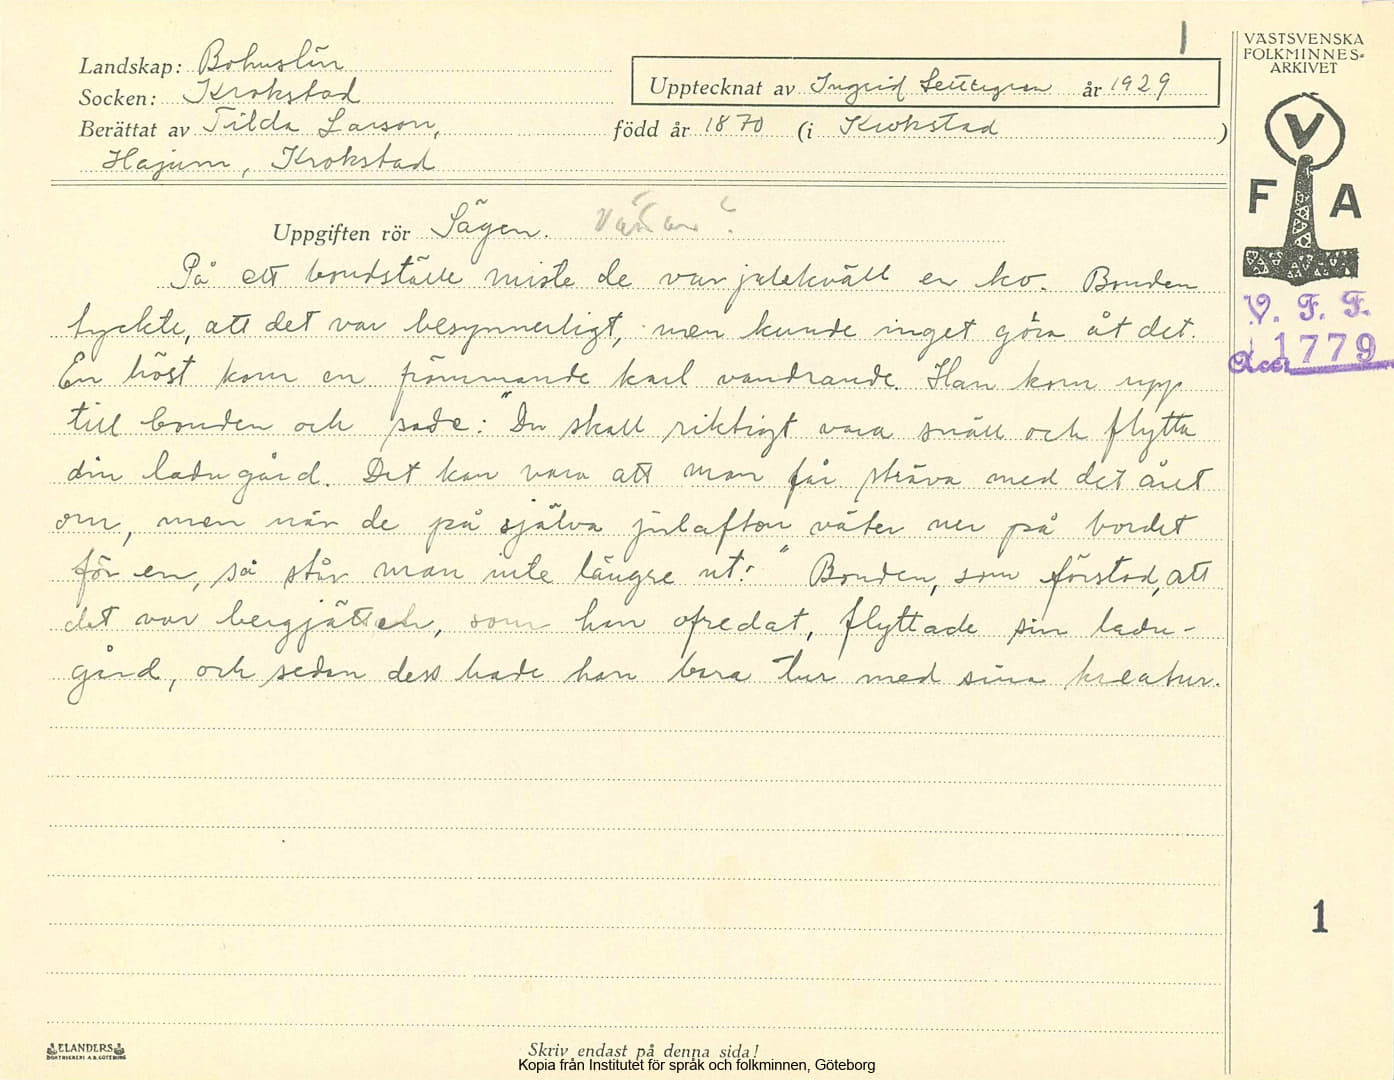 Landskap: Bohuslän
Socken: Krokstad
Upptecknat av Ingrid år 1929
Berättat av Tilda Larson, född år 1870 (i Krokstad )
Hajum, Krokstad
VÄSTSVENSKA
FOLKMINNES-
ARKIVET
V
F A
V. F. F.
Acc. 1779
Uppgiften rör Sägen.
På ett bondställe miste de var julekväll en ko. Bonden
tyckte, att det var besynnerligt, men kunde inget göra åt det.
En höst kom en främmande karl vandrande. Han kom upp
till bonden och sade: "Du skall riktigt vara snäll och flytta
din ladugård. Det kan vara att man får sträva med det året
om, men när de på själva julafton väter ner på bordet
för en, så står man inte längre ut!" Bonden, som förstod, att
det var bergjätten, som han ofredat, flyttade sin ladu-
gård, och sedan dess hade han bara tur med sina kreatur.
1
ELANDERS
BOKTRYCKERI A.B. GÖTEBORG
Skriv endast på denna sida!
Kopia från Institutet för språk och folkminnen, Göteborg